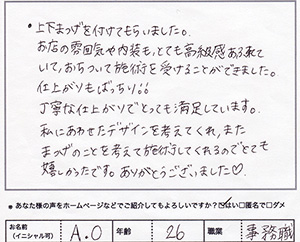 ・上下まつげを付けてもらいました。
お店の雰囲気や内装も、とても高級感あふれて
いて、おちついて施術を受けることができました。
仕上がりもばっちり!!
丁寧な仕上がりでとっても満足しています。
私にあわせたデザインを考えてくれ、また
まつげのことを考えて施術してくれるのでとても
嬉しかったです。ありがとうございました♡
● あなた様の声をホームページなどでご紹介してもよろしいですか?☑はい□匿名で□ダメ
お名前(イニシャル可) A.O 年齢 26 職業 事務職